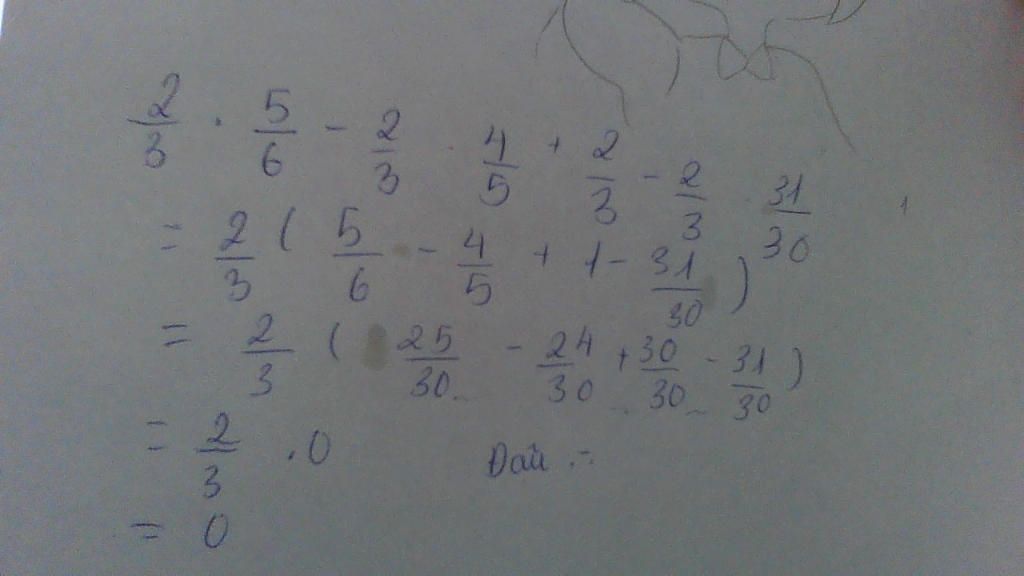 2/3 · 5/6 - 2/3 · 4/5 + 2/3 - 2/3 · 31/30
= 2/3 ( 5/6 - 4/5 + 1 - 31/30 )
= 2/3 ( 25/30 - 24/30 + 30/30 - 31/30 )
= 2/3 · 0
Дай :-
= 0